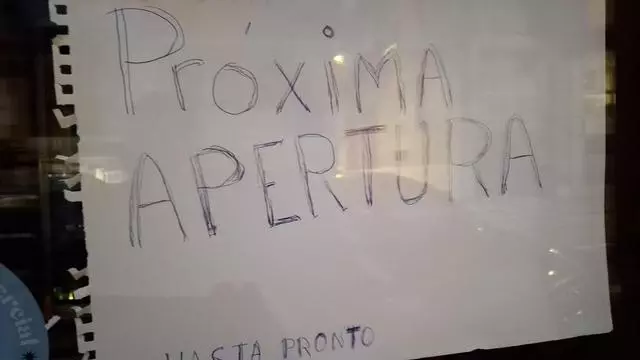 Próxima
APERTURA
HASTA PRONTO